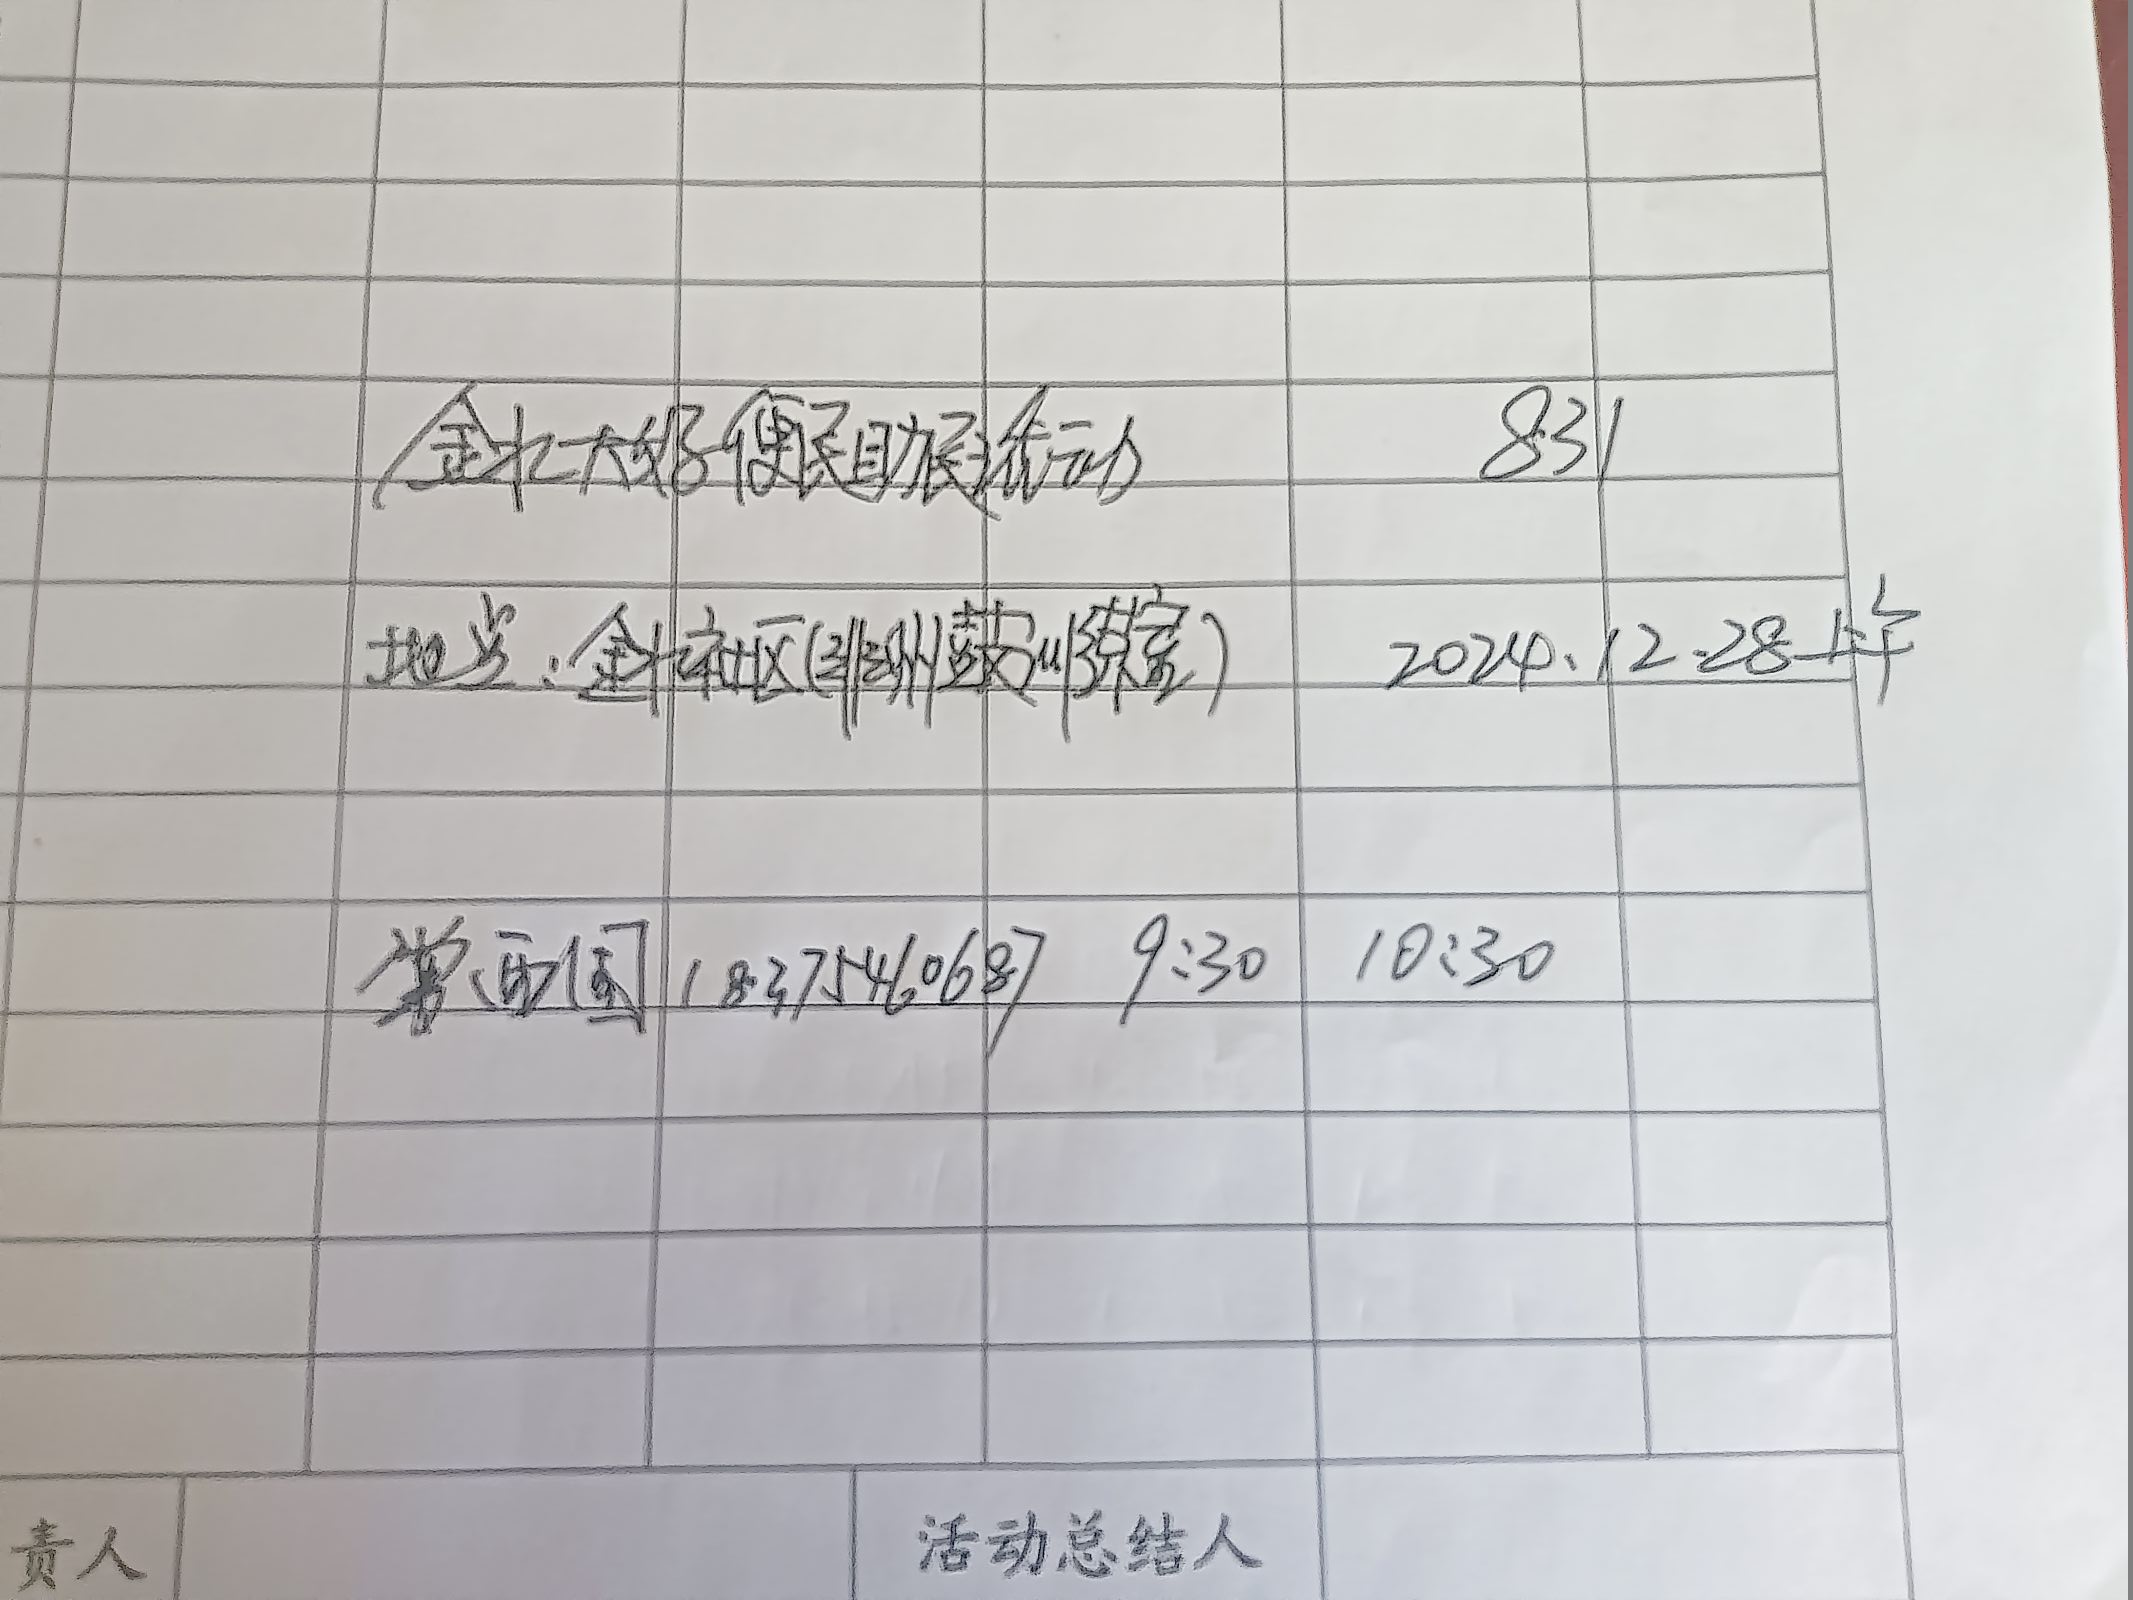 金水大好便民助民活动 831
地点:金水社区(非洲鼓训练室) 2024.12.28上午
西国 18375460687 9:30 10:30
责人 活动总结人